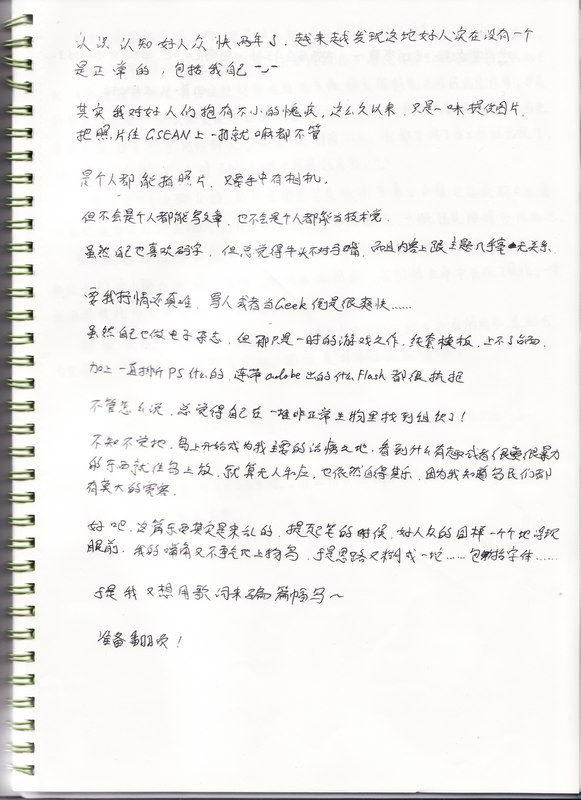 认识认知好人众快两年了，越来越发现这地好人实在没有一个
是正常的，包括我自己
其实我对好人们抱有不小的愧疚，这么久以来，只是一味提供图片，
把照片往CSEAN上一扔就啥都不管
是个人都能拍照片，只要手中有相机。
但不会是个人都能写文章，也不会是个人都能当技术党。
虽然自己也喜欢码字，但总觉得牛头不对马嘴，而且内容上跟主题几乎毫无关系。
要我抒情还真难，骂人或者当Geek倒是很爽快……
虽然自己也做电子杂志，但那只是一时的游戏之作，纯套模板，上不了台面。
加上一直排斥PS什么的，连带adobe出的什么Flash都很抗拒
不管怎么说，总觉得自己在一堆非正常生物里找到组织了！
不知不觉地，岛上开始成为我主要的治病之地，看到什么有趣或者很要很暴力
的东西就往岛上放，就算无人响应，也依然自得其乐，因为我知道岛民们都
有莫大的宽容。
好吧，这篇东西其实是来乱的，提起笔的时候，好人众的面样一个个地浮现
眼前，我的嘴角又不争气地上扬鸟，于是思路又糊成一坨……包括字体……
于是我又想用歌词来骗篇幅鸟～
准备翻页！